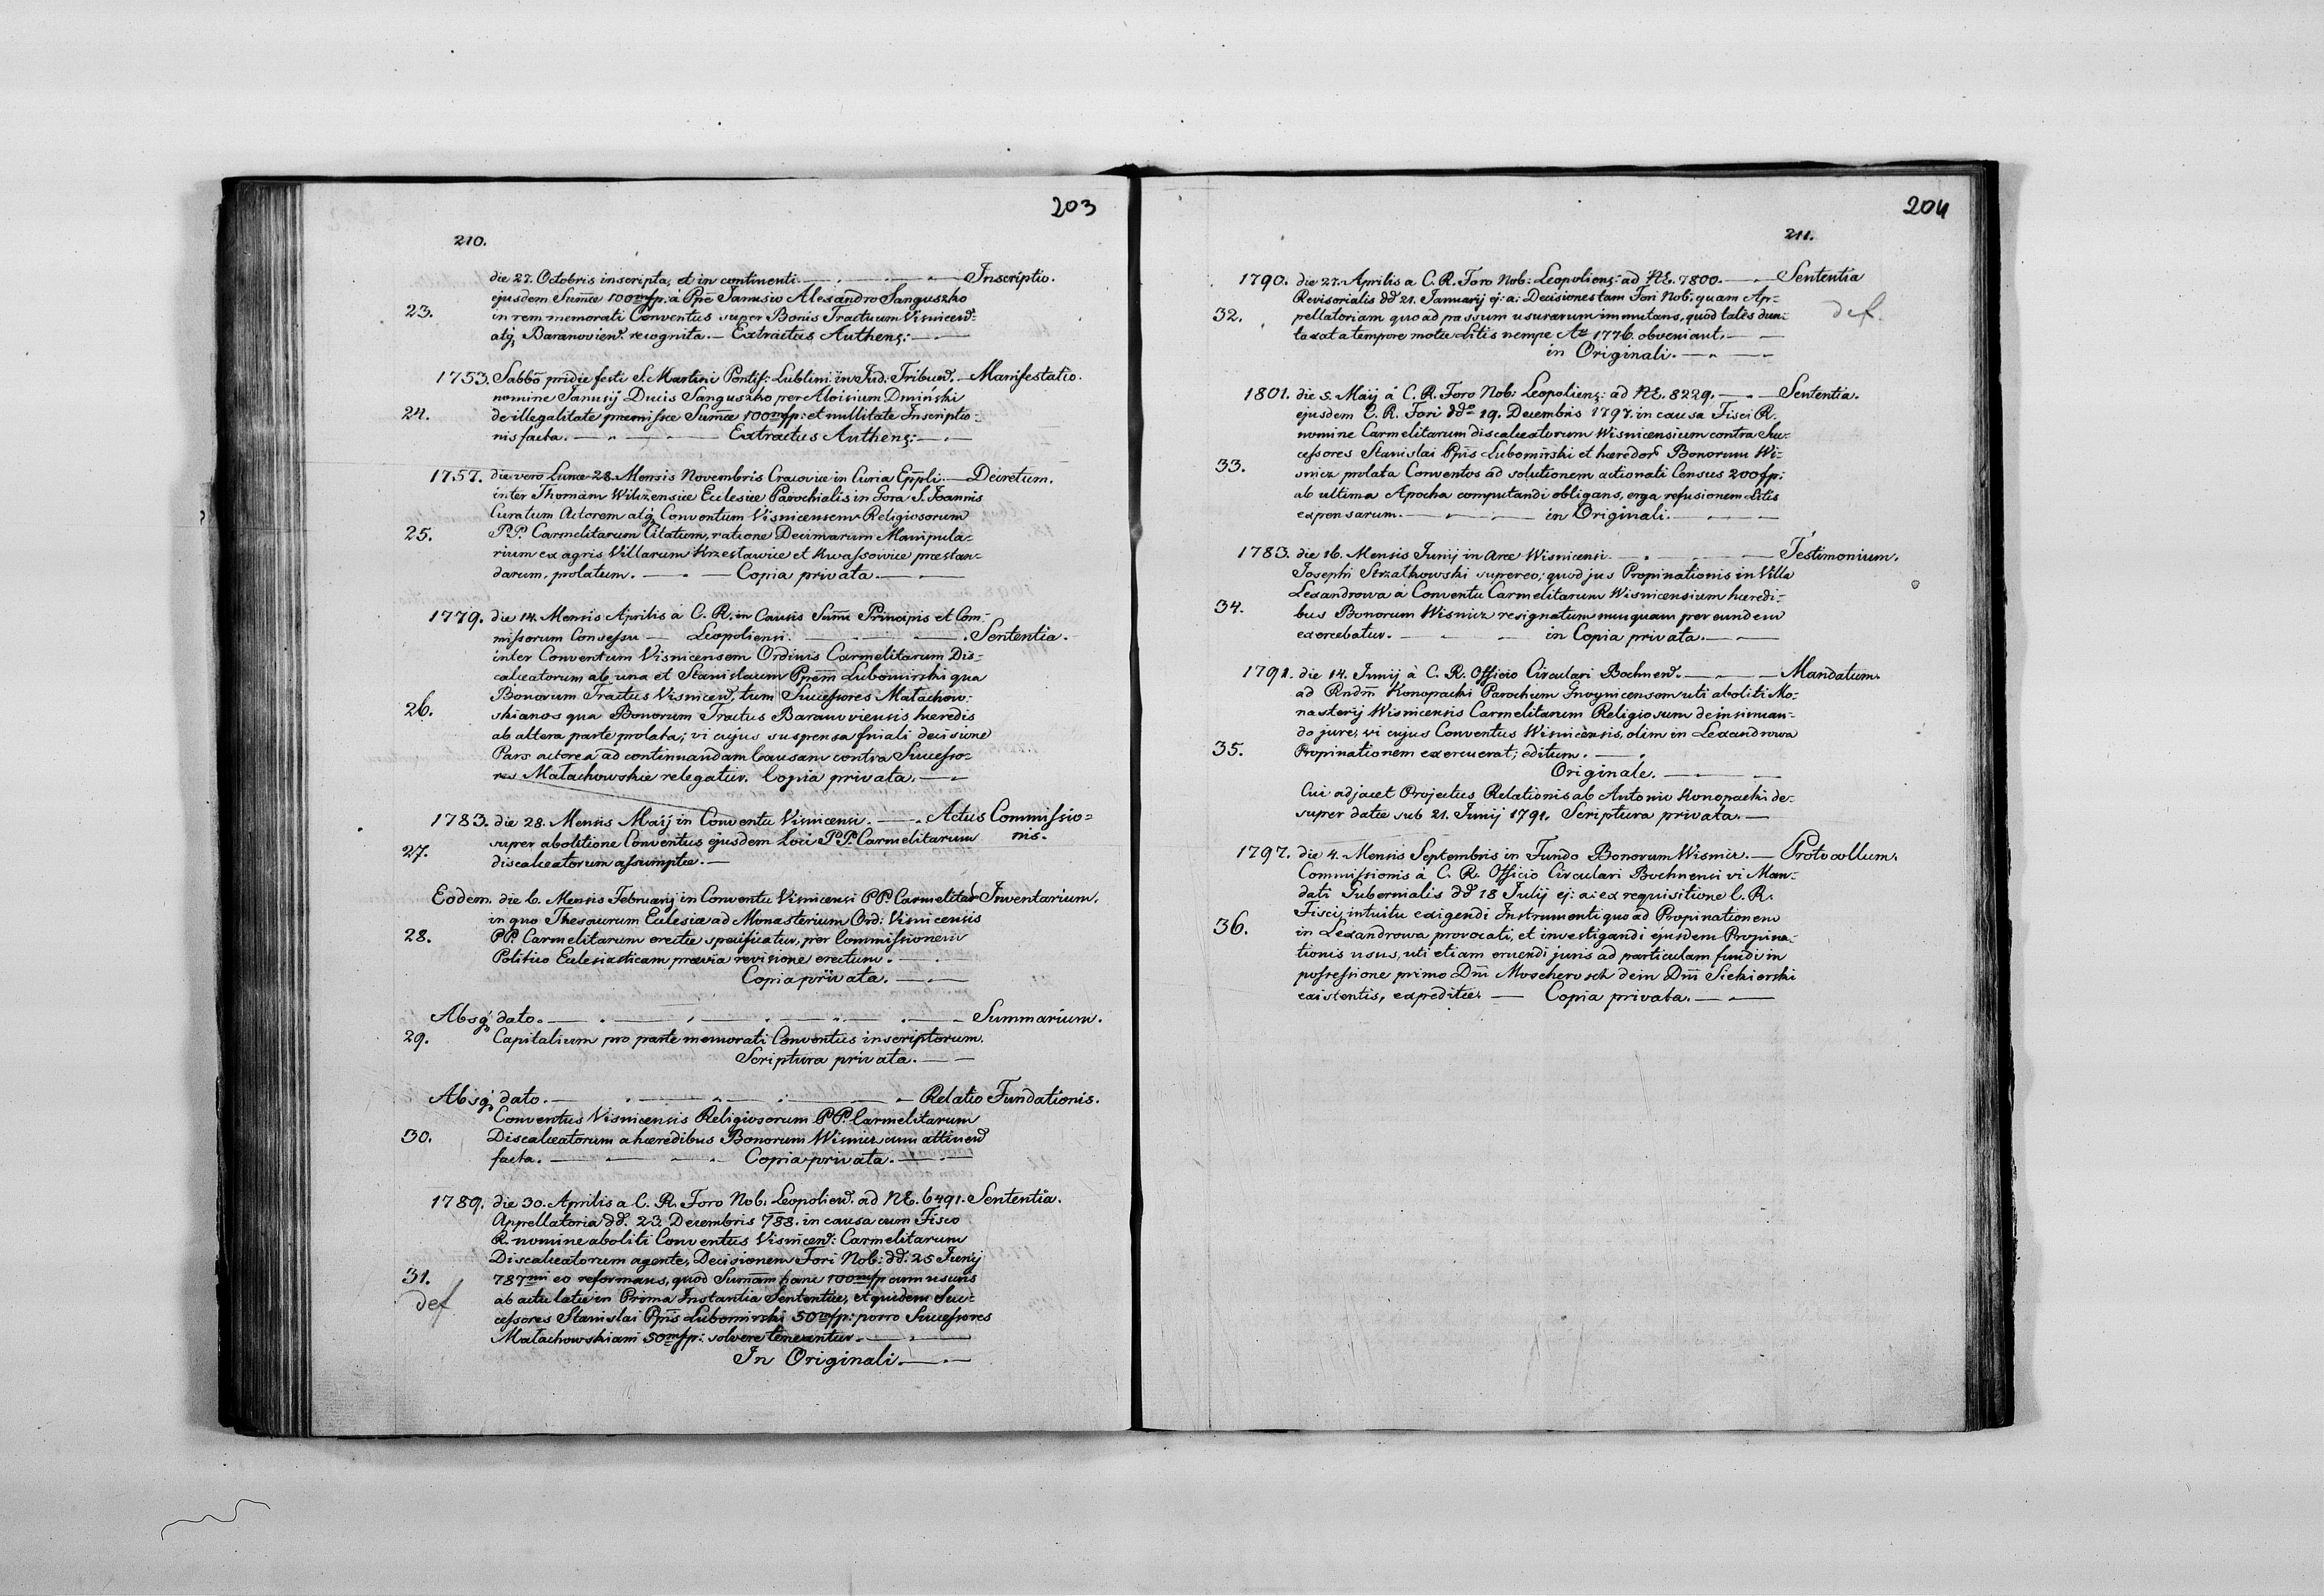 203
210.
die 27. Octobris inscripta, et in continenti. Inscriptio.
ejusdem Summæ 100m fp: a Ppe Janusio Alexandro Sanguszko
23. in rem memorati Conventus super Bonis Tractuum Visnicen:
atq Baranovien. recognita. — Extractus Authens:
1753. Sabbõ pridie festi S. Martini Pontif: Lublini in Jud. Tribun. — Manifestatio.
nomine Janusij Ducis Sanguszko per Aloisium Dminski
24. de illegalitate præmissæ Summæ 100m fp: et nullitate Inscriptio-
nis facta. — Extractus Authens:
1757. die vero Lunæ 28. Mensis Novembris Cracoviæ in Curia Eppli — Decretum.
inter Thomam Wilczensiæ Ecclesiæ Parochialis in Gora S. Joannis
Curatum Actorem atq Conventum Visnicensem Religiosorum
25. PP. Carmelitarum Citatum, ratione Decimarum Manipula-
rium ex agris Villarum Krzesławice et Kwassowice præstan-
darum, prolatum. — Copia privata.
1779. die 14. Mensis Aprilis a C. R. in Causis Summi Principis et Com-
missorum Consessu — Leopoliensi. Sententia.
inter Conventum Visnicensem Ordinis Carmelitarum Dis-
calceatorum ab una et Stanislaum Ppem Lubomirski qua
Bonorum Tractus Visnicen, tum Successores Małachow-
26. skianos qua Bonorum Tractus Baranoviensis hæredis
ab altera parte prolata, vi cujus suspensa finali decisione
Pars actorea ad continuandam Causam contra Successo-
res Małachowskie relegatur. Copia privata.
1783. die 28. Mensis Maij in Conventu Visnicensi. — Actus Commissio-
nis.
super abolitione Conventus ejusdem Loci PP. Carmelitarum
27. discalceatorum assumptæ.
Eodem. die 6. Mensis Februarij in Conventu Visnicensi PP. Carmelitar Inventarium.
in quo Thesaurum Ecclesiæ ad Monasterium Ord: Visnicensis
28. PP. Carmelitarum erectæ specificatur, per Commissionem
Politico Ecclesiasticam prævia revisione erectum.
Copia privata.
Absq dato. Summarium.
29. Capitalium pro parte memorati Conventus inscriptorum.
Scriptura privata.
Absq dato. Relatio Fundationis.
Conventus Visnicensis Religiosorum PP. Carmelitarum
30. Discalceatorum a hæredibus Bonorum Wisnicz cum attinen
facta. Copia privata.
1789. die 30. Aprilis a C. R. Foro Nob. Leopolien. ad NE. 6491. Sententia.
Appellatoria dd. 23 Decembris 788. in causa cum Fisco
R. nomine aboliti Conventus Visnicen: Carmelitarum
Discalceatorum agente, Decisionem Fori Nob: dd. 25 Junij
31. 787mi eo reformans, quod Summam hanc 100m fp cum usuris
def ab actu latæ in Prima Instantia Sententiæ, et quidem Suc-
cessores Stanislai Ppis Lubomirski 50m fp: porro Successores
Małachowskiani 50m fp: solvere teneantur.
In Originali.
204
211.
1790. die 27. Aprilis a C. R. Foro Nob: Leopoliens: ad NE. 7800. Sententia
Revisorialis dd 21. Januarij ej: a: Decisiones tam Fori Nob: quam Ap-
32. pellatoriam quo ad passum usurarum immutans, quod tales dun- def.
taxat a tempore motæ Litis nempe Ao 1776. obveniant.
in Originali.
1801. die 5. Maij à C. R. Foro Nob: Leopoliens: ad NE. 8229. Sententia.
ejusdem C. R. Fori ddo 19. Decembris 1797. in causa Fisci R.
nomine Carmelitarum discalceatorum Wisnicensium contra Suc-
cessores Stanislai Ppis Lubomirski et hæredor Bonorum Wi-
33. snicz prolata Conventos ad solutionem actionati Census 200 fp:
ab ultima Apocha computandi obligans, erga refusionem Litis
expensarum. in Originali.
1783. die 16. Mensis Junij in Arce Wisnicensi. Testimonium.
Josephi Strzałkowski super eo, quod jus Propinationis in Villa
Lexandrowa à Conventu Carmelitarum Wisnicensium hæredi-
34. bus Bonorum Wisnicz resignatum nunquam per eundem
exercebatur. in Copia privata.
1791. die 14. Junij à C. R. Officio Circulari Bochnen. Mandatum.
ad Rndm Konopacki Parochum Gnoynicensem uti aboliti Mo-
nasterij Wisnicensis Carmelitarum Religiosum de insinuan-
do jure, vi cujus Conventus Wisnicensis, olim in Lexandrowa
35. Propinationem exercuerat, editum.
Originale.
Cui adjacet Projectus Relationis ab Antonio Konopacki de-
super datæ sub 21. Junij 1791. Scriptura privata.
1797. die 4. Mensis Septembris in Fundo Bonorum Wisnicz. — Protocollum.
Commissionis à C. R. Officio Circulari Bochnensi vi Man-
dati Gubernialis dd 18 Julij ej: a: ex requisitione C. R.
Fisci, intuitu exigendi Instrumenti quo ad Propinationem
36. in Lexandrowa provocati, et investigandi ejusdem Propina-
tionis usus, uti etiam eruendi juris ad particulam fundi in
possessione primo Dni Moscherosch dein Dni Siekierski
existentis, expeditæ. — Copia privata.